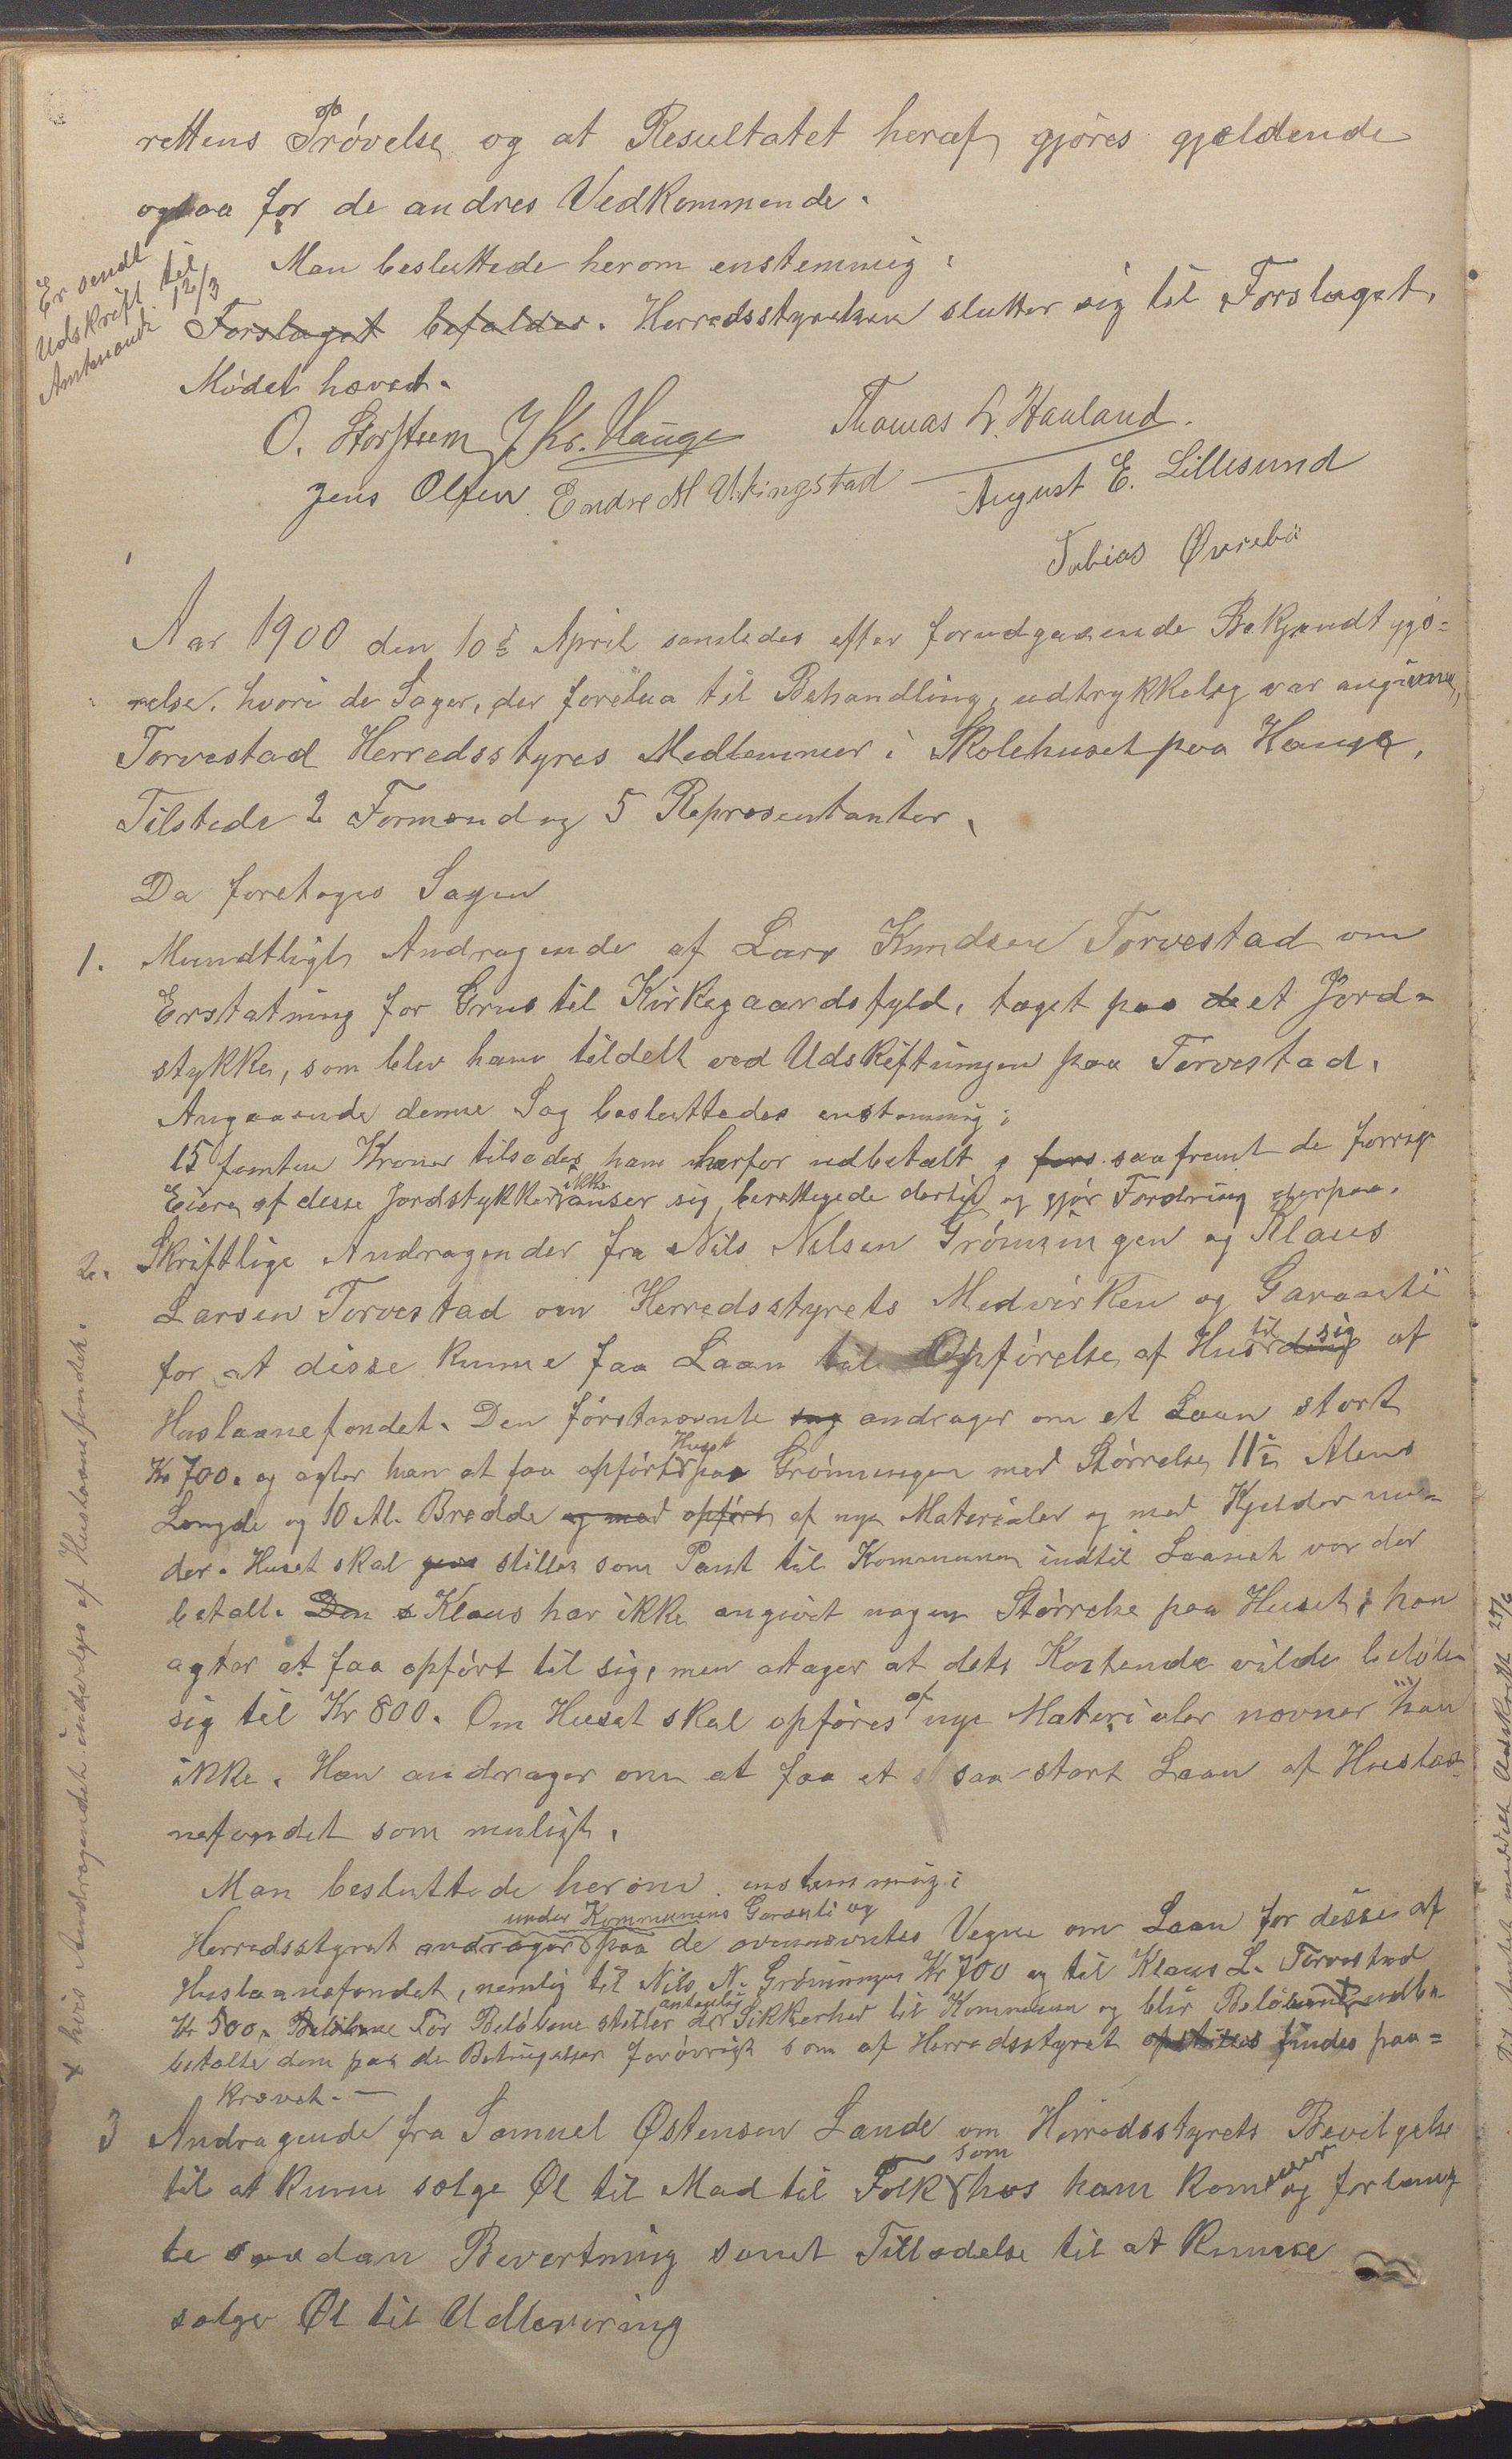 rettens Prøvelse og at Resultatet heraf gjøres gjældende
ogsaa for de andres Vedkommende.
Er sendt
Udskrift til
12/3
Man besluttede herom enstemmig:
Forslaget befaldes. Herredsstyrelsen slutter sig til Forslaget.
Mødet hævet.
O. Storsteen J. Kr. Hauge Thomas L. Hauland.
Jens Olsen Endre M Utvingstad August E. Lillesund
Tobias Øvrebø
Aar 1900 den 10de April samledes efter forudgaaende Bekjendtgjø-
relse, hvori de Sager, der forelaa til Behandling, udtrykkelig var angivne,
Torvestad Herredsstyres Medlemmer i Skolehuset paa Hauge.
Tilstede 2 Formænd og 5 Repræsentanter.
Da foretoges Sagen
1. Mundtligt Andragende af Lars Knudsen Torvestad om
Erstatning for Grus til Kirkegaardsfyld, taget paa de et Jord-
stykke, som blev ham tildelt ved Udskiftningen paa Torvestad.
Angaaende denne Sag besluttedes enstemmig:
15 femten Kroner tilsades ham herfor udbetalt, fors saafremt de forrige
Eiere af disse Jordstykker ikke anser sig berettigede dertil og gjør Fordring derpaa.
2. Skriftlige Andragender fra Nils Nilsen Grønningen og Klaus
Larsen Torvestad om Herredsstyrets Medvirken og Garanti
for at disse kunne faa Laan til Opførelse af Huse til sig af
Huslaanefondet. Den førstnævnte andrager om et Laan stort
Kr 700. og agter han at faa opført Huset paa Grønningen med Størrelse 11½ Alens
Længde og 10 Al. Bredde og med opført af nye Materialer og med Kjelder un-
der. Huset skal stilles som Pant til Kommunen indtil Laanet var der
betalt. Den Klaus har ikke angivet nogen Størrelse paa Huset, han
agter at faa opført til sig, men antager at dets Kostende vilde beløbe
sig til Kr 800. Om Huset skal opføres af nye Materialer nævner han
ikke. Han andrager om at faa et saa stort Laan af Huslaa-
nefondet som muligt.
Man besluttede herom enstemmig:
Herredsstyret andrager under Kommunens Garanti og paa de ovennævntes Vegne om Laan for disse af
Huslaanefondet, nemlig til Nils N. Grønningen Kr 700 og til Klaus L. Torvestad
Kr 500. Beløbene For Beløbene stilles der antagelig Sikkerhed til Kommunen og blir Beløbene udbe-
betalte dem paa de Betingelser forøvrigt som af Herredsstyret opstilles findes paa-
krævet.
+ hvis Andragendet indvilges af Huslaanefondet.
3 Andragende fra Samuel Østensen Lande om Herredsstyrets Bevilgelse
til at kunne sælge Øl til Mad til Folk som hos ham kommer og forlang-
te saadan Bevertning samt Tilladelse til at kunne
sælge Øl til Udlevering